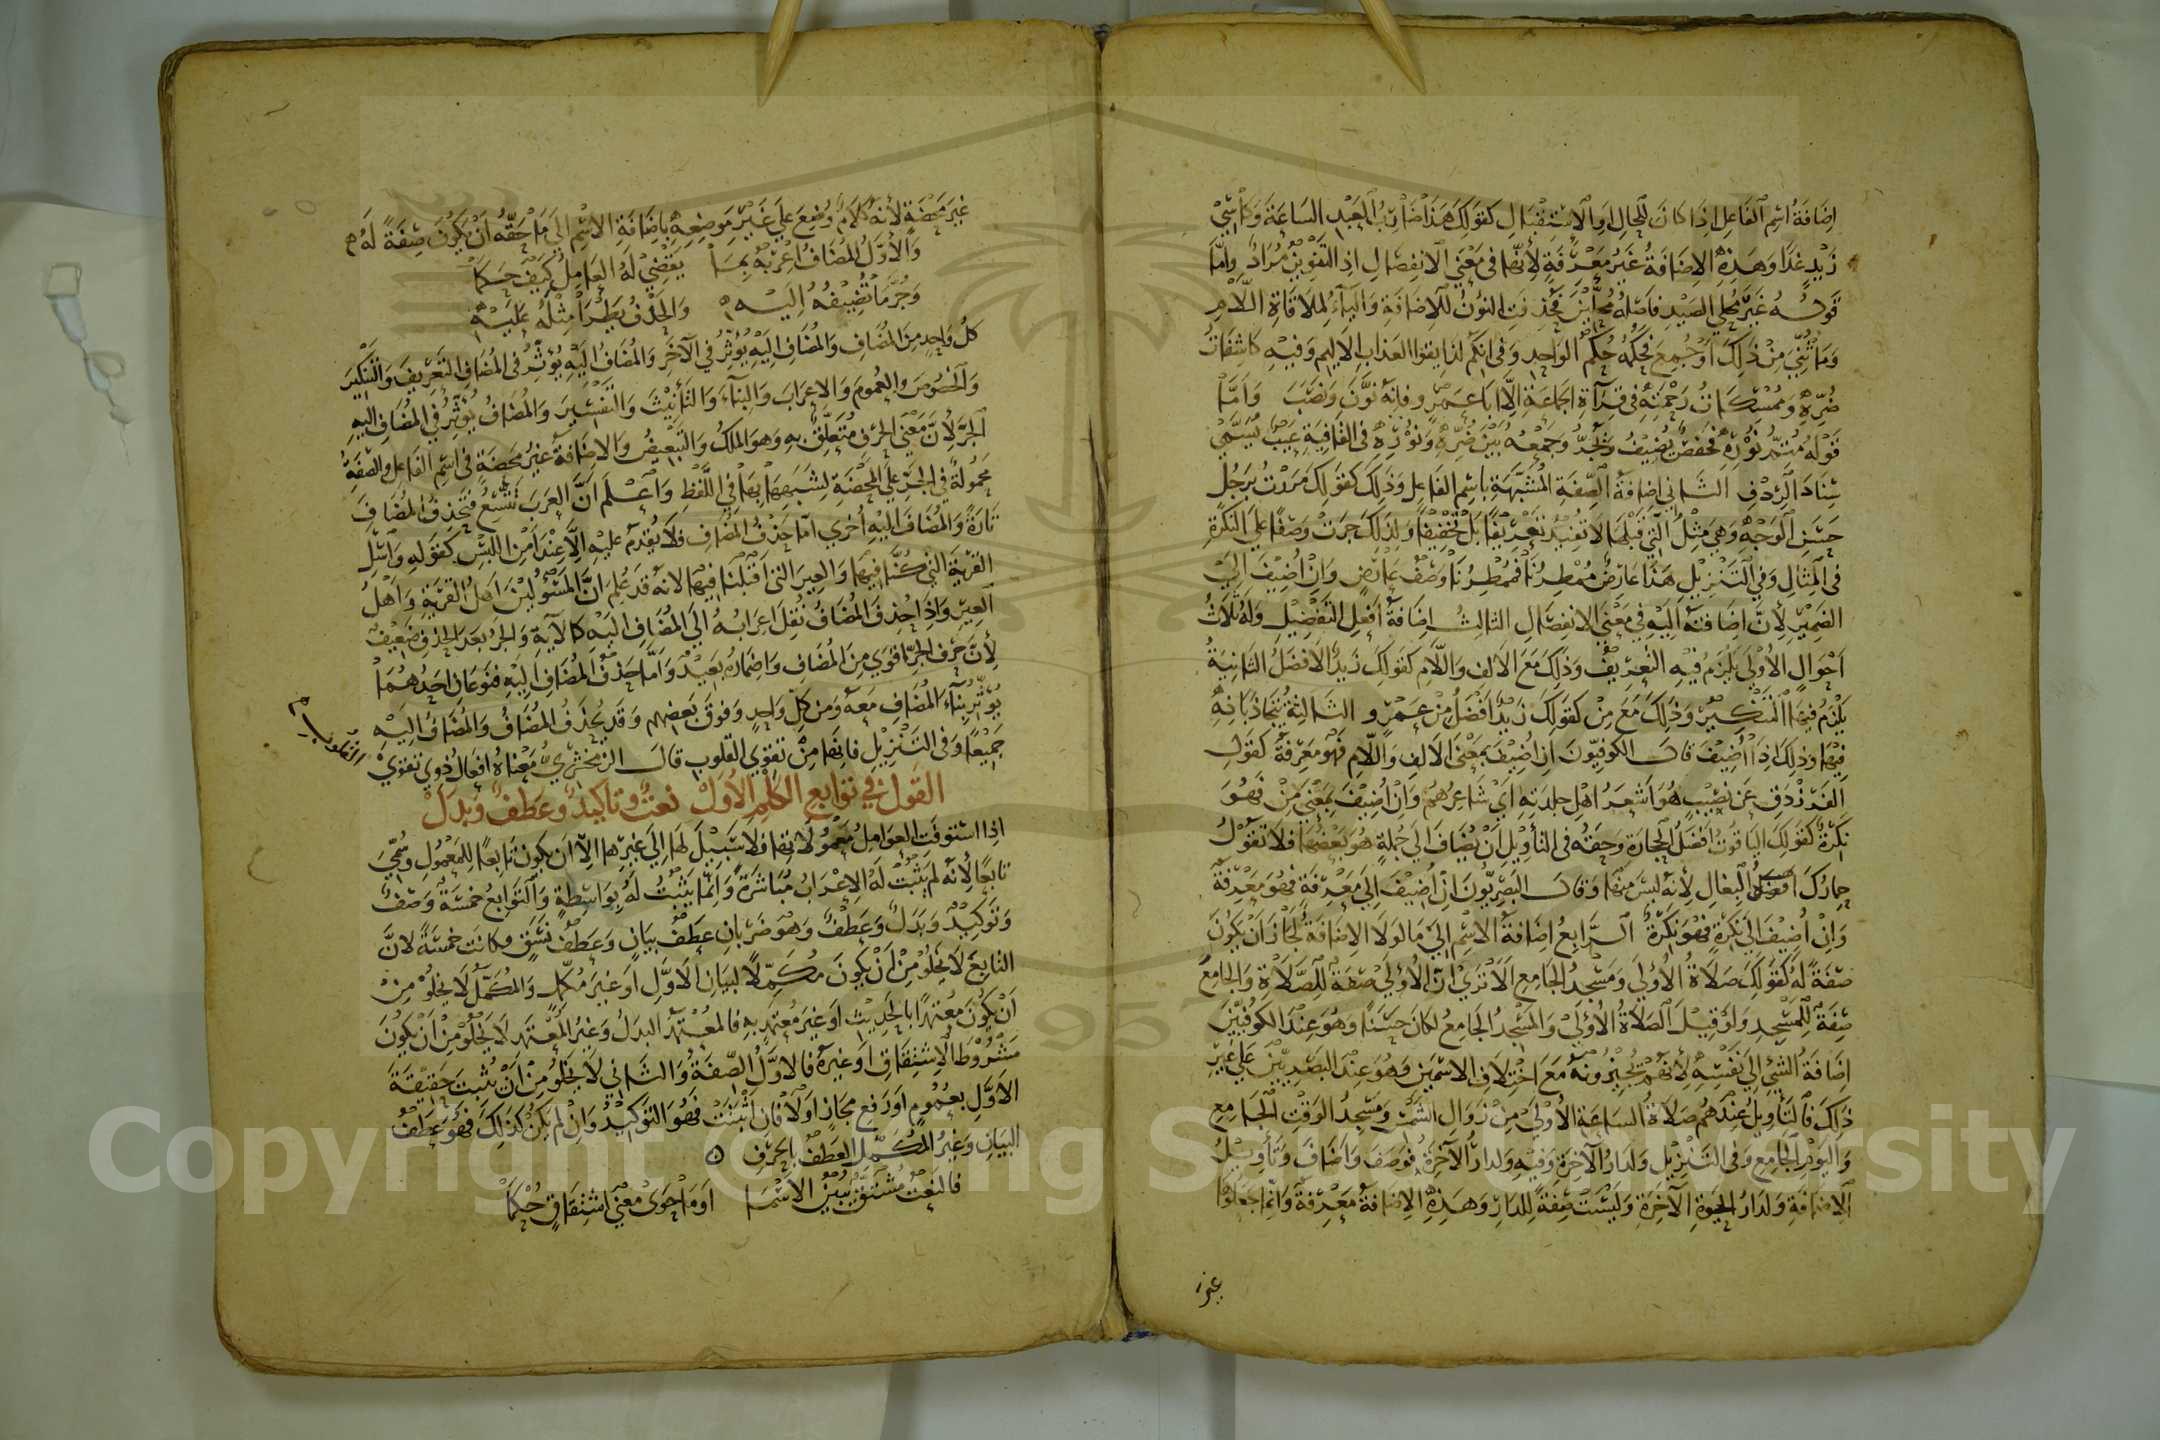 اضافة اسم الفاعل اذا كان للحال او الاستقبال كقولك هذا ضارب العبد الساعة وكاسي
زيد غدا وهذه الاضافة غير معرفة لانها في معنى الانفصال اذ التنوين مراد واما
قوله غير محلي الصيد فاصله محلين فحذفت النون للاضافة والياء لملاقاة اللام
وما ثني من ذلك او جمع فحكمه حكم الواحد وفي انكم لذايقوا العذاب الاليم وفيه كاشفات
ضره وممسكات رحمته في قراة الجماعة الا ابا عمرو فانه نون ونصب واما
قوله متمم نوره فخفض يضيف وجمعه بين ضره ونوره في القافية عيب يسمى
سناد الردف الثاني اضافة الصفة المشبهة باسم الفاعل وذلك كقولك مررت برجل
حسن الوجه وهي مثل التي قبلها لا تفيد تعريفا بل تخفيفا ولذلك جرت وصفا على النكرة
في المثال وفي التنزيل هذا عارض ممطرنا فممطرنا وصف عارض وان اضيف الى
الضمير لان اضافته اليه في معنى الانفصال الثالث اضافة افعل التفضيل وله ثلاث
احوال الاولى يلزم فيه التعريف وذلك مع الالف واللام كقولك زيد الافضل الثانية
يلزم فيها التنكير وذلك مع من كقولك زيد افضل من عمرو الثالثة يتجاذبانه
فيها وذلك اذا اضيف قال الكوفيون ان اضيف بمعنى الالف واللام فهو معرفة كقول
الفرزدق عن نصيب هو اشعر اهل جلدته اي شاعرهم وان اضيف بمعنى من فهو
نكرة كقولك الياقوت افضل الحجارة وحقه في التأويل ان يضاف الى جملة هو بعضها فلا تقول
حمارك افضل البغال لانه ليس منها وقال البصريون ان اضيف الى معرفة فهو معرفة
وان اضيف الى نكرة فهو نكرة الرابع اضافة الاسم الى ما لولا الاضافة لجاز ان يكون
صفة له كقولك صلاة الاولى ومسجد الجامع الا ترى ان الاولى صفة للصلاة والجامع
صفة للمسجد ولو قيل الصلاة الاولى والمسجد الجامع لكان حسنا وهو عند الكوفيين
اضافة الشي الى نفسه لانهم يجيزونه مع اختلاف الاسمين وهو عند البصريين على غير
ذلك فالتأويل عندهم صلاة الساعة الاولى من زوال الشمس ومسجد الوقت الجامع
واليوم الجامع وفي التنزيل ولدار الاخرة وفيه ولدار الاخرة فوصف واضاف وتأويل
الاضافة ولدار الحيوة الاخرة وليست صفة للدار وهذه الاضافة معرفة وانما جعلوها
غير
غير محضة لانه كلام وضع على غير موضعه باضافة الاسم الى ما حقه ان يكون صفة له
والاول المضاف اعربه بما يقضي له العامل كيف حكما
وجر ما تضيفه اليه والحذف يطرا مثله عليه
كل واحد من المضاف والمضاف اليه يوثر في الاخر والمضاف اليه يوثر في المضاف التعريف والتنكير
والخصوص والعموم والاعراب والبناء والتأنيث والتفسير والمضاف يوثر في المضاف اليه
الجر لان معنى الحرف متعلق به وهو الملك والتبعيض والاضافة غير محضة في اسم الفاعل والصفة
محمولة في الجر على المحضة لشبهها بها في اللفظ واعلم ان العرب تتسع فتحذف المضاف
تارة والمضاف اليه اخرى اما حذف المضاف فلا يقدم عليه الا عند امن اللبس كقوله واسئل
القرية التي كنا فيها والعير التي اقبلنا فيها لانه قد علم ان المسؤلين اهل القرية واهل
العير واذا حذف المضاف نقل اعرابه الى المضاف اليه كالاية والجر بعد الحذف ضعيف
لان حرف الجر اقوى من المضاف واضماره بعيد واما حذف المضاف اليه فنوعان احدهما
يوثر بناء المضاف معه ومن كل واحد وفوق بعضهم وقد يحذف المضاف والمضاف اليه
جميعا وفي التنزيل فانها من تقوى القلوب قال الزمخشري معناه افعال ذوي تقوى
القلوب
القول في توابع الكلم الاول نعت وتاكيد وعطف وبدل
اذا استوفت العوامل معمولاتها فلا سبيل لها الى غيرها الا ان يكون تابعا للمعمول وسمي
تابعا لانه لم يثبت له الاعراب مباشرة وانما يثبت له بواسطة والتوابع خمسة وصف
وتوكيد وبدل وعطف وهو ضربان عطف بيان وعطف نسق وكانت خمسة لان
التابع لا يخلو من ان يكون مكملا لبيان الاول او غير مكمل والمكمل لا يخلو من
ان يكون معتمدا بالحديث او غير معتمد به فالمعتمد البدل وغير المعتمد لا يخلو من ان يكون
مشروط الاشتقاق او غيره فالاول الصفة والثاني لا يخلو من ان يثبت حقيقة
الاول بعموم او رفع مجاز او لا فان اثبتت فهو التوكيد وان لم يكن كذلك فهو عطف
البيان وغير المكمل العطف بالحرف
فالنعت مشتق يبين الاسما او ما حوى معنى اشتقاق حكما
Copyright © King Saud University
1957